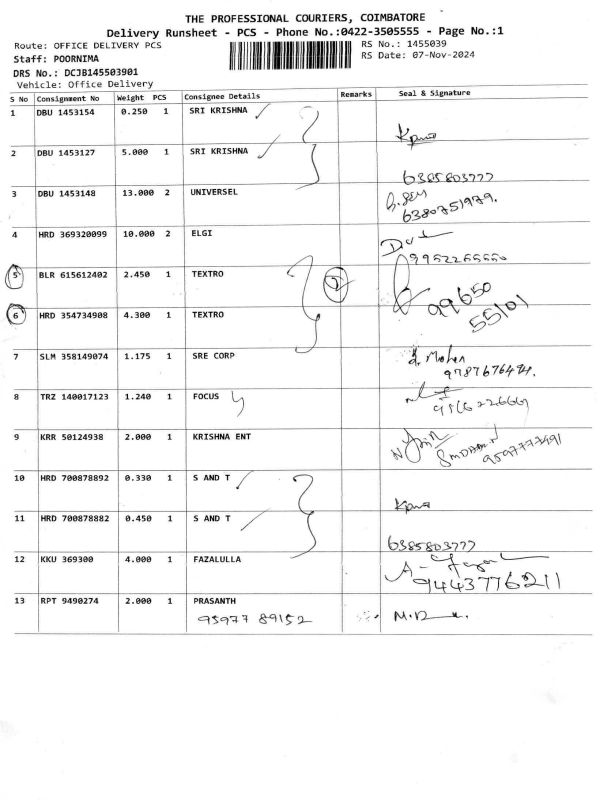 THE PROFESSIONAL COURIERS, COIMBATORE
Delivery Runsheet - PCS - Phone No.:0422-3505555 - Page No.:1
Route: OFFICE DELIVERY PCS RS No.: 1455039
Staff: POORNIMA RS Date: 07-Nov-2024
DRS No.: DCJB145503901
Vehicle: Office Delivery
S No Consignment No Weight PCS Consignee Details Remarks Seal & Signature
1 DBU 1453154 0.250 1 SRI KRISHNA
2 DBU 1453127 5.000 1 SRI KRISHNA
6385803777
3 DBU 1453148 13.000 2 UNIVERSEL
6380751979.
4 HRD 369320099 10.000 2 ELGI
9952265550
5 BLR 615612402 2.450 1 TEXTRO 2
99650
55101
6 HRD 354734908 4.300 1 TEXTRO
7 SLM 358149074 1.175 1 SRE CORP
Mohan
8 TRZ 140017123 1.240 1 FOCUS
9 KRR 50124938 2.000 1 KRISHNA ENT
10 HRD 700878892 0.330 1 S AND T
11 HRD 700878882 0.450 1 S AND T
6385803777
12 KKU 369300 4.000 1 FAZALULLA
9443776211
13 RPT 9490274 2.000 1 PRASANTH
95977 89152